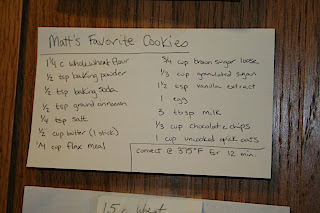 Matt's Favorite Cookies
1 1/4 c whole wheat flour
1/2 tsp baking powder
1/2 tsp baking soda
1/2 tsp ground cinnamon
1/4 tsp salt
1/2 cup butter (1 stick)
1/4 cup flax meal
3/4 cup brown sugar loose
1/3 cup granulated sugar
1 1/2 tsp vanilla extract
1 egg
3 tbsp milk
1/3 cup chocolate chips
1 cup uncooked quick oats
convect @ 375°F for 12 min.